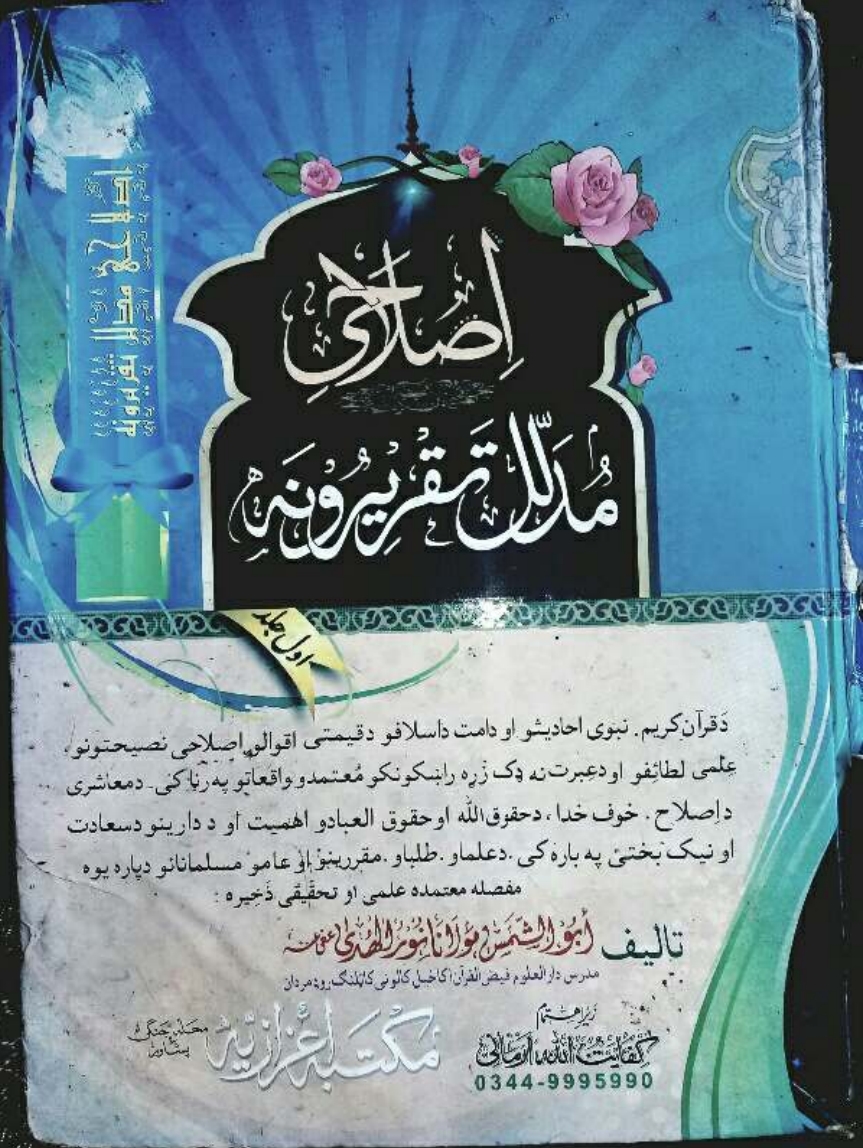 اصلاحی
مدلل تقریرونه
اول جلد
دقرآن کریم. نبوی احادیثو او دامت داسلافو دقیمتی اقوالو اصلاحی نصیحتونو،
علمی لطائفو او دعبرت نه ډک زړه راښکونکو معتمدو واقعاتو په رنا کی. دمعاشری
داصلاح. خوف خدا، دحقوق الله او حقوق العبادو اهمیت او د دارینو دسعادت
او نیک بختئ په باره کی. دعلماو. طلباو. مقررینو او عامو مسلمانانو دپاره یوه
مفصله معتمده علمی او تحقیقی ذخیره :
تالیف أبو الشمس مولانا نور الهدی عفی عنه
مدرس دارالعلوم فیض القرآن اکاخیل کالونی کاټلنگ روډ مردان
زیر اهتمام
کفایت الله ارمانی
0344-9995990
مکتبه اعزازیه
محله جنگی پشاور
اصلاحی مدلل تقریرونه